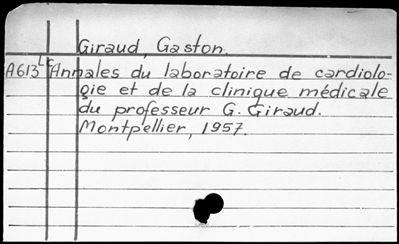 Giraud, Gaston.
A613 Lc Annales du laboratoire de cardiolo-
gie et de la clinique médicale
du professeur G. Giraud.
Montpellier, 1957.